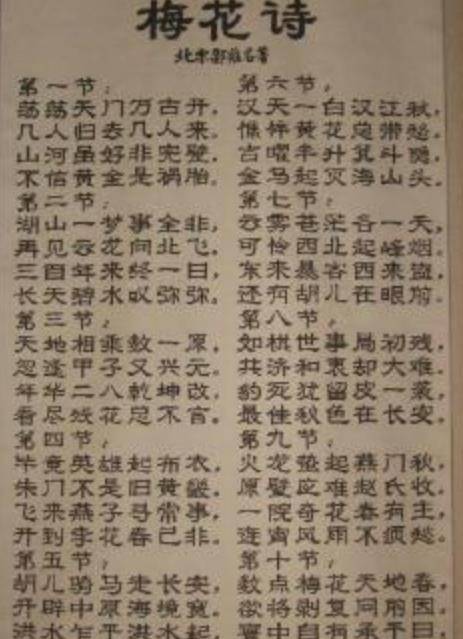 梅花诗
北宋邵雍名著
第一节:
荡荡天门万古开,
几人归去几人来。
山河虽好非完璧,
不信黄金是祸胎。
第二节:
湖山一梦事全非,
再见云花向北飞。
三百年来终一日,
长天碧水叹弥弥。
第三节:
天地相乘数一原,
忽逢甲子又兴元。
年华二八乾坤改,
看尽残花总不言。
第四节:
毕竟英雄起布衣,
朱门不是旧黄畿。
飞来燕子寻常事,
开到李花春已非。
第五节:
胡儿骑马走长安,
开辟中原海境宽。
洪水乍平洪水起,
第六节:
汉天一白汉江秋,
憔悴黄花总带愁。
吉曜半升箕斗隐,
金马起灭海山头。
第七节:
云雾苍茫各一天,
可怜西北起峰烟。
东来暴客西来盗,
还有胡儿在眼前。
第八节:
如棋世事局初残,
共济和衷却大难。
豹死犹留皮一袭,
最佳秋色在长安。
第九节:
火龙蛰起燕门秋,
原璧应难赵氏收。
一院奇花春有主,
连宵风雨不须愁。
第十节:
数点梅花天地春,
欲将剥复问前因。
寰中自有承平日,